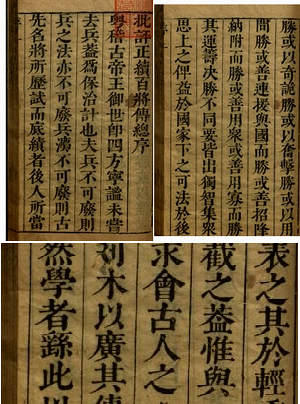 批評正續百將傳總序
粵稽古帝王御世即四方寧謐未嘗
去兵蓋爲保治計也夫兵不可廢則
兵之法亦不可廢兵法不可廢則古
先名將所歷試而底績者後人所當
勝或以奇詭勝或以奮擊勝或以間
勝或善連援與國而勝或善招降
納附而勝或善用衆或善用寡而勝
其運籌決勝不同要皆出獨智集衆
思上之俾益於國家下之可法於後
表之其於輕
截之蓋惟與
求會古人之
刻木以廣其傳
然學者繇此以